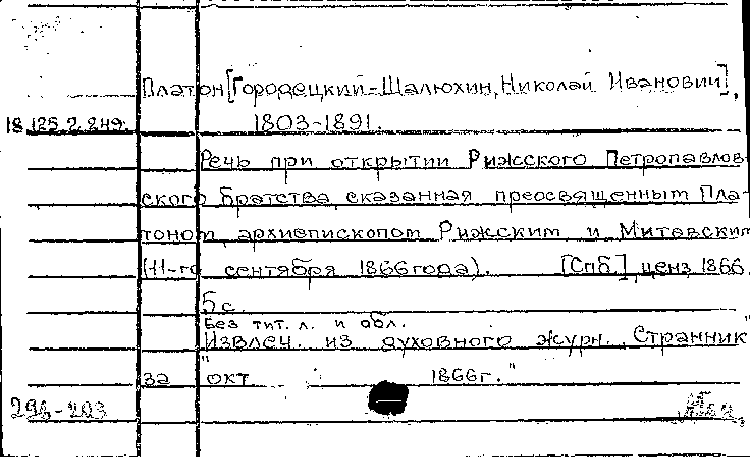 Платон [Городецкий-Шалюхин, Николай Иванович],
18.125.2.249. 1803-1891.
Речь при открытии Рижского Петропавлов-
ского братства, сказанная преосвященным Пла-
тоном, архиепископом Рижским и Митавским
(11-го сентября 1866 года). [Спб.], ценз. 1866.
5 с.
Без тит. л. и обл.
Извлеч. из духовного журн. "Странник"
за "окт. 1866 г."